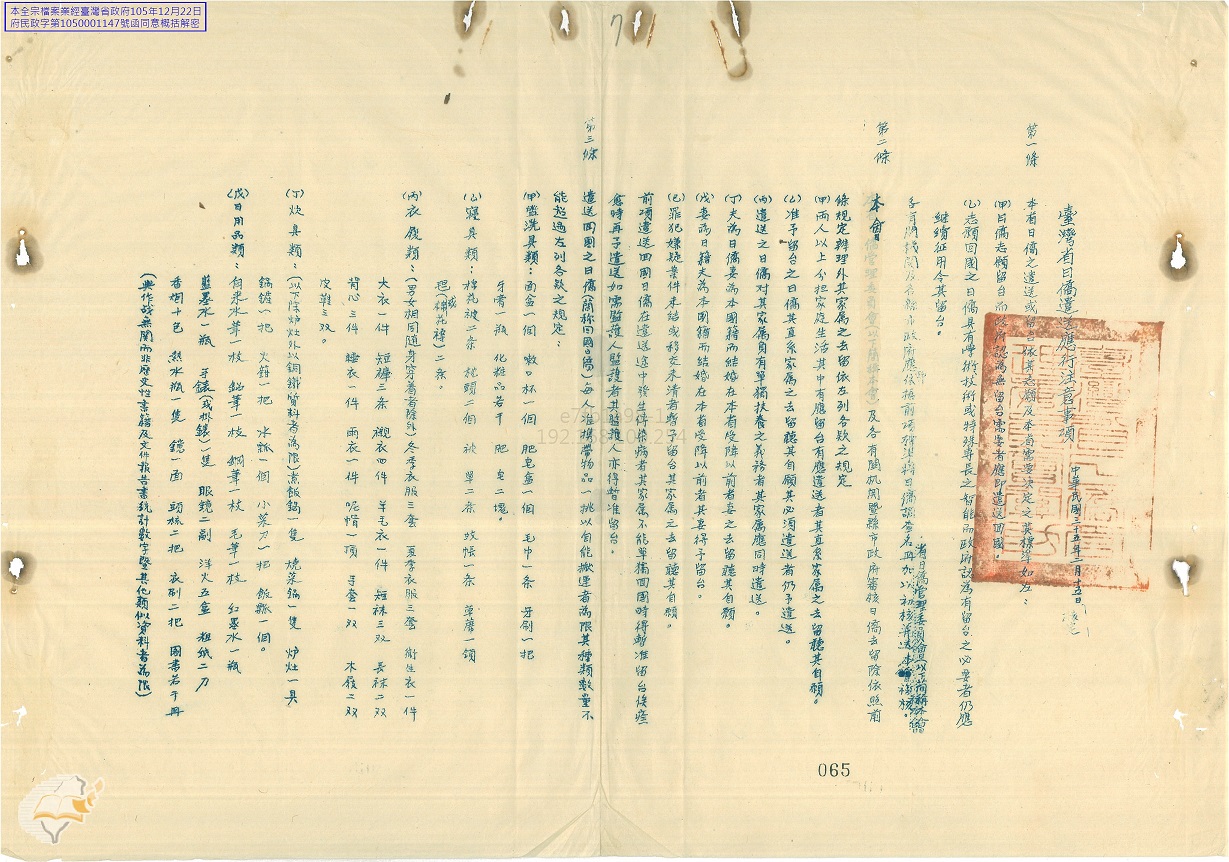 本全宗檔案業經臺灣省政府105年12月22日
府民政字第1050001147號函同意概括解密
7
臺灣省日僑遣送應行注意事項
中華民國三十五年二月十五日
第一條
本省日僑之遣送或留台依其志願及本省需要決定之其標準如左：
(甲)日僑志願留台而政府認為無留台需要者應即遣送回國。
(乙)志願回國之日僑具有學術技術或特殊專長之智能而政府認為有留台之必要者仍應
繼續征用令其留台。
第二條
省日僑管理委員會(以下簡稱本會
各有關機關及各縣市政府應依據前項標準將日僑調查
本會
及各有關机關暨縣市政府審核日僑去留除依照前
條規定辦理外其家属之去留依左列各款之規定
(甲)兩人以上分担家庭生活其中有應留台有應遣送者其直系家属之去留聽其自願。
(乙)准予留台之日僑其直系家属之去留聽其自願其必須遣送者仍予遣送。
(丙)遣送之日僑对其家属負有單獨扶養之義務者其家属應同時遣送。
(丁)夫為日僑妻為本國籍而結婚在本省受降以前者妻之去留聽其自願。
(戊)妻為日籍夫為本國籍而結婚在本省受降以前者其妻得予留台。
(己)罪犯嫌疑案件未結或移交未清者暫予留台其家属之去留聽其自願。
前項遣送回國日僑在遣送途中發生傳染病者其家属不能單獨回國時得暫准留台俟痊
愈時再予遣送如需監護人監護者其監護人亦得暫准留台。
第三條
遣送回國之日僑(簡称回國日僑)每人准攜帶物品一挑以自能搬運者為限其種類數量不
能超過左列各款之規定：
(甲)盥洗具類：面盆一個 嗽口杯一個 肥皂盒一個 毛巾一条 牙刷一把
牙膏一瓶 化粧品若干 肥皂二塊。
(乙)寢具類：棉花被二条 枕頭二個 被單二条 蚊帳一条 草蓆一領
毯(或棉花褥)二条。
(丙)衣履類：(男女相同隨身穿着者除外)冬季衣服三套 夏季衣服三套 衛生衣一件
大衣一件 短褲三条 襯衣四件 羊毛衣一件 短袜三双 長袜二双
背心三件 睡衣一件 雨衣一件 呢帽一頂 手套一双 木屐二双
皮鞋三双。
(丁)炊具類：(以下除炉灶外以銅鐵質料者為限)煮飯鍋一隻 燒菜鍋一隻 炉灶一具
鍋鏟一把 火鉗一把 水瓢一個 小菜刀一把 飯瓢一個。
(戊)日用品類：自來水筆一枝 鉛筆一枝 鋼筆一枝 毛筆一枝 紅墨水一瓶
藍墨水一瓶 手錶(或掛錶)一隻 眼鏡二副 洋火五盒 粗紙二刀
香烟十包 熱水瓶一隻 鏡一面 頭梳二把 衣刷二把 圖書若干冊
(與作战無關而非歷史性書籍及文件報告書統計數字暨其他類似資料者為限)
065